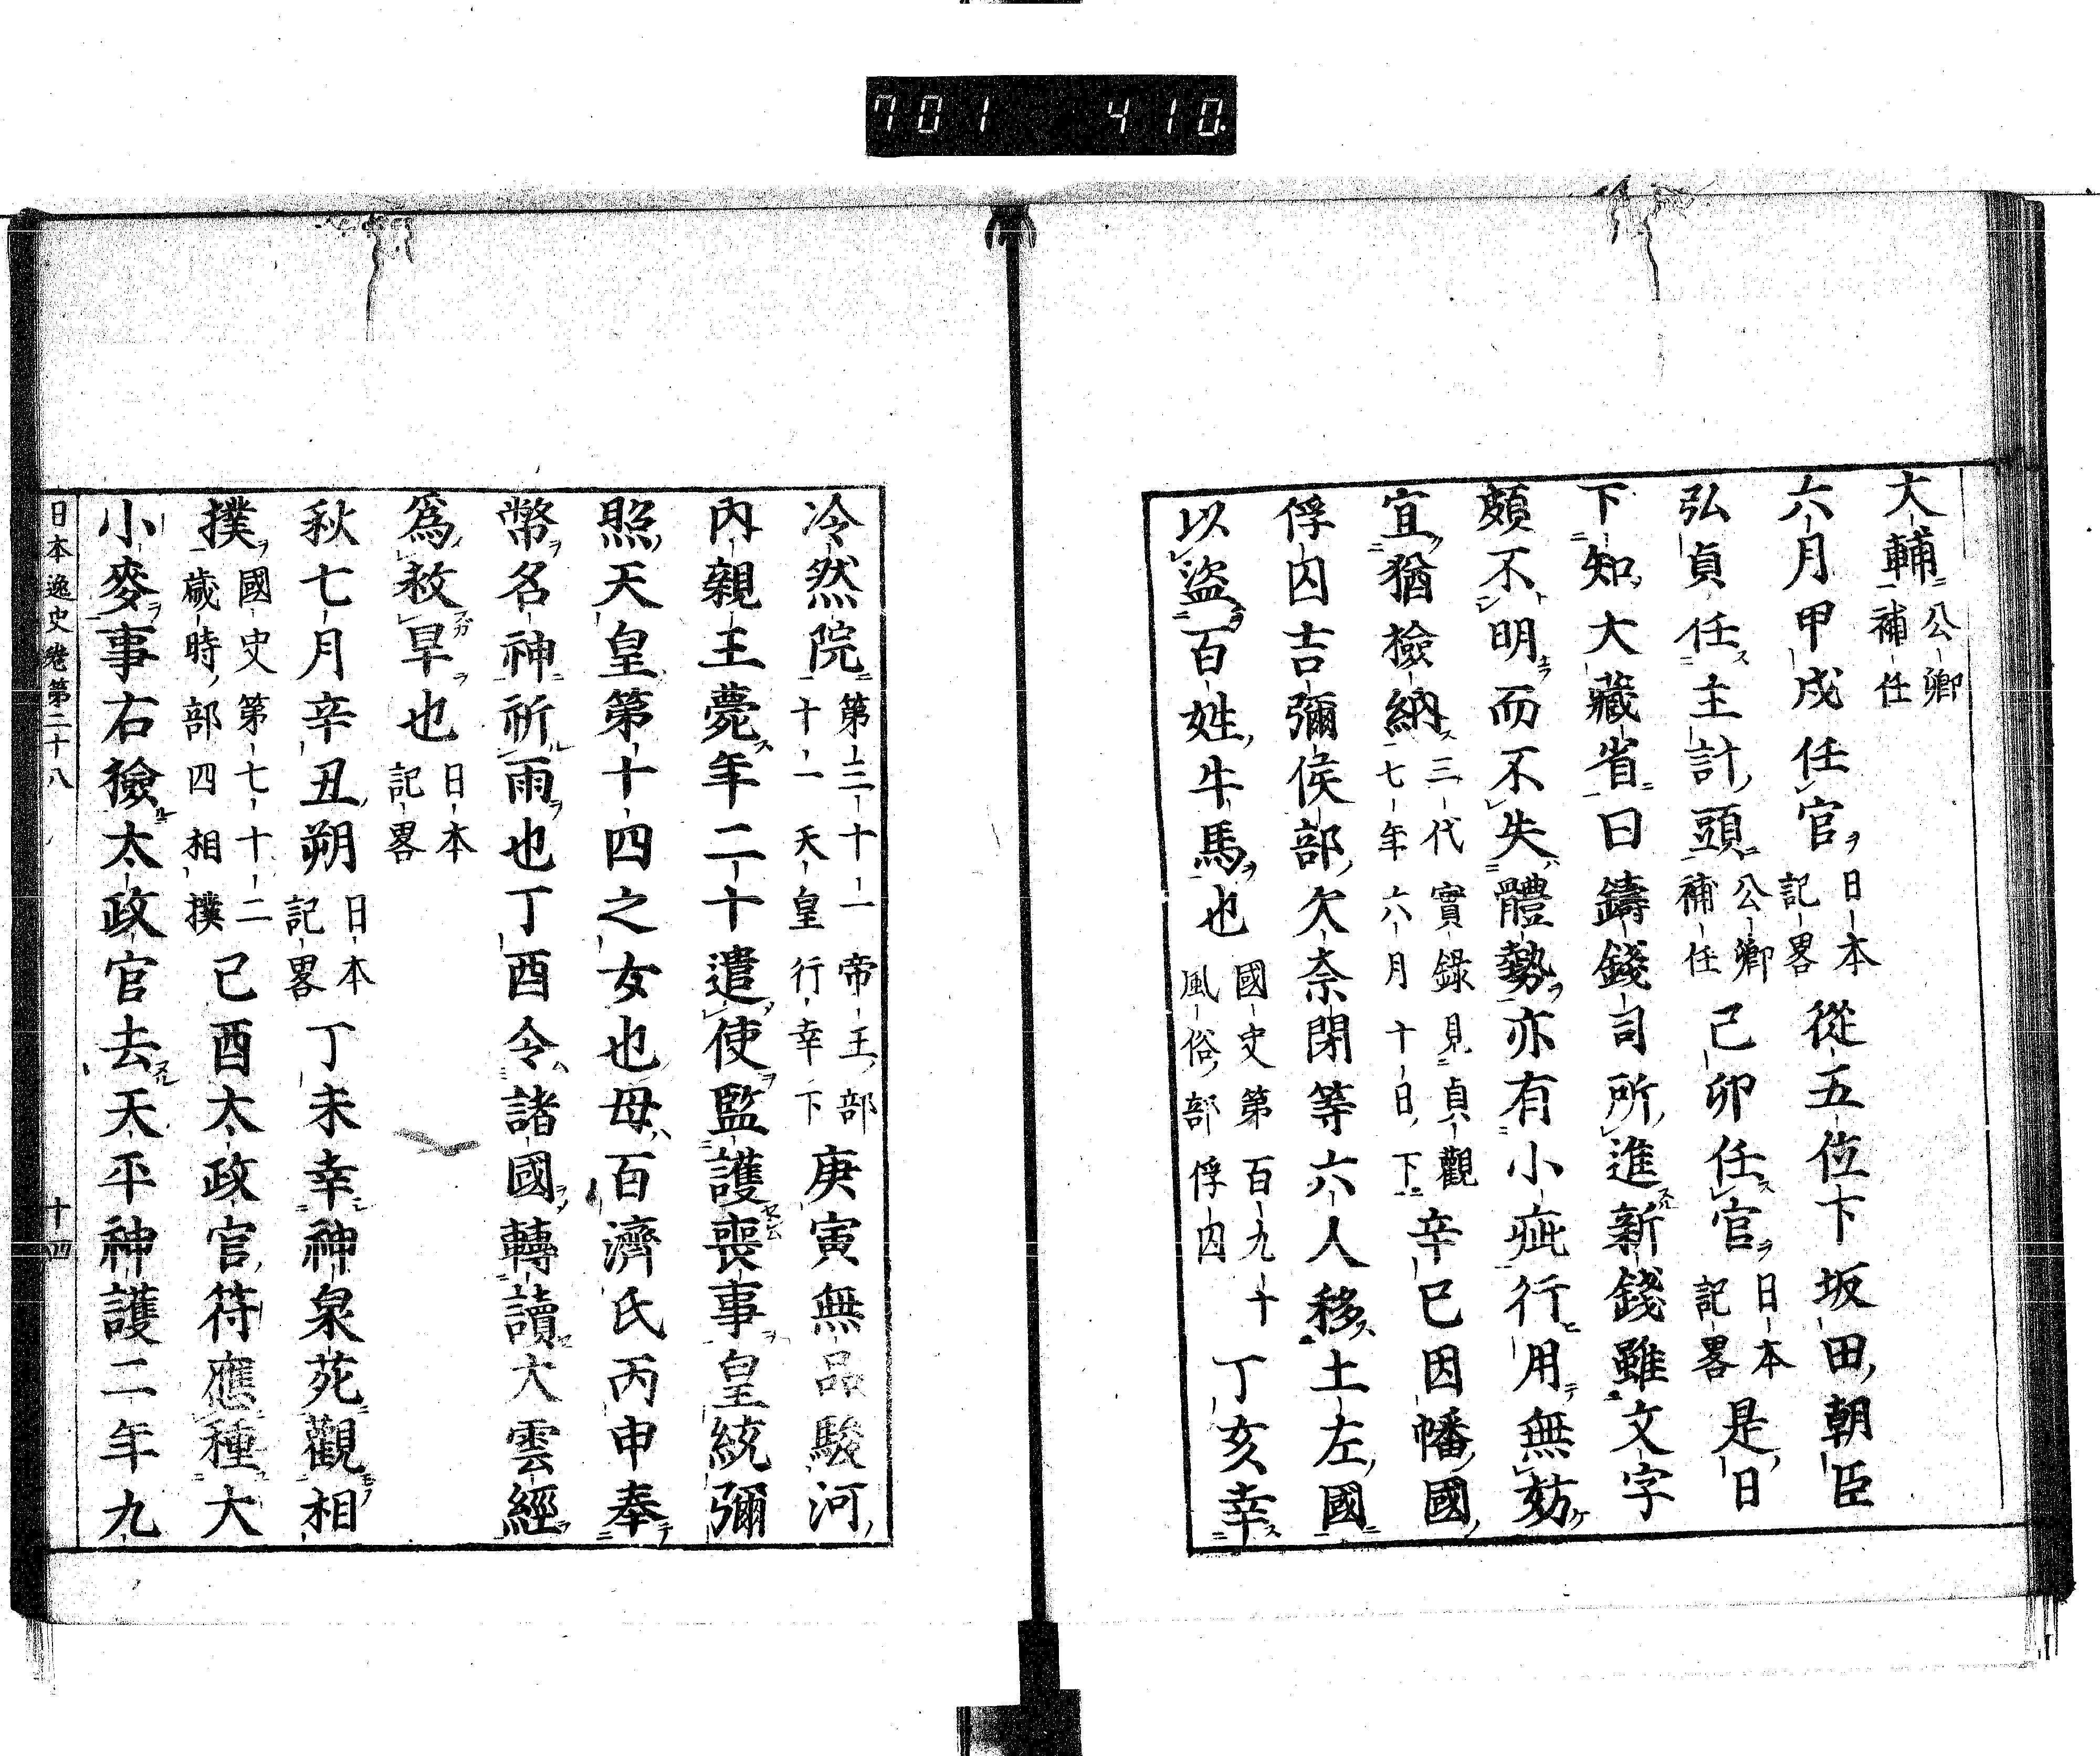 701 410.
大輔公卿補任
六月甲戌任官日本記畧從五位下坂田朝臣
弘貞任主計頭公卿補任己卯任官日本記畧是日
下知大藏省曰鑄錢司所進新錢雖文字
頗不明而不失體勢亦有小疵行用無妨
宜猶撿納三代實錄見貞觀七年六月十日下辛巳因幡國
俘囚吉彌侯部欠奈閉等六人移土左國
以盜百姓牛馬也國史第百九十風俗部俘囚丁亥幸
冷然院第三十一帝王部十一天皇行幸下庚寅無品駿河
内親王薨年二十遣使監護喪事皇統彌
照天皇第十四之女也母百濟氏丙申奉
幣名神祈雨也丁酉令諸國轉讀大雲經
爲救旱也日本記畧
秋七月辛丑朔日本記畧丁未幸神泉苑觀相
撲國史第七十二歲時部四相撲己酉太政官符應種大
小麥事右撿太政官去天平神護二年九
日本逸史卷第二十八 十四